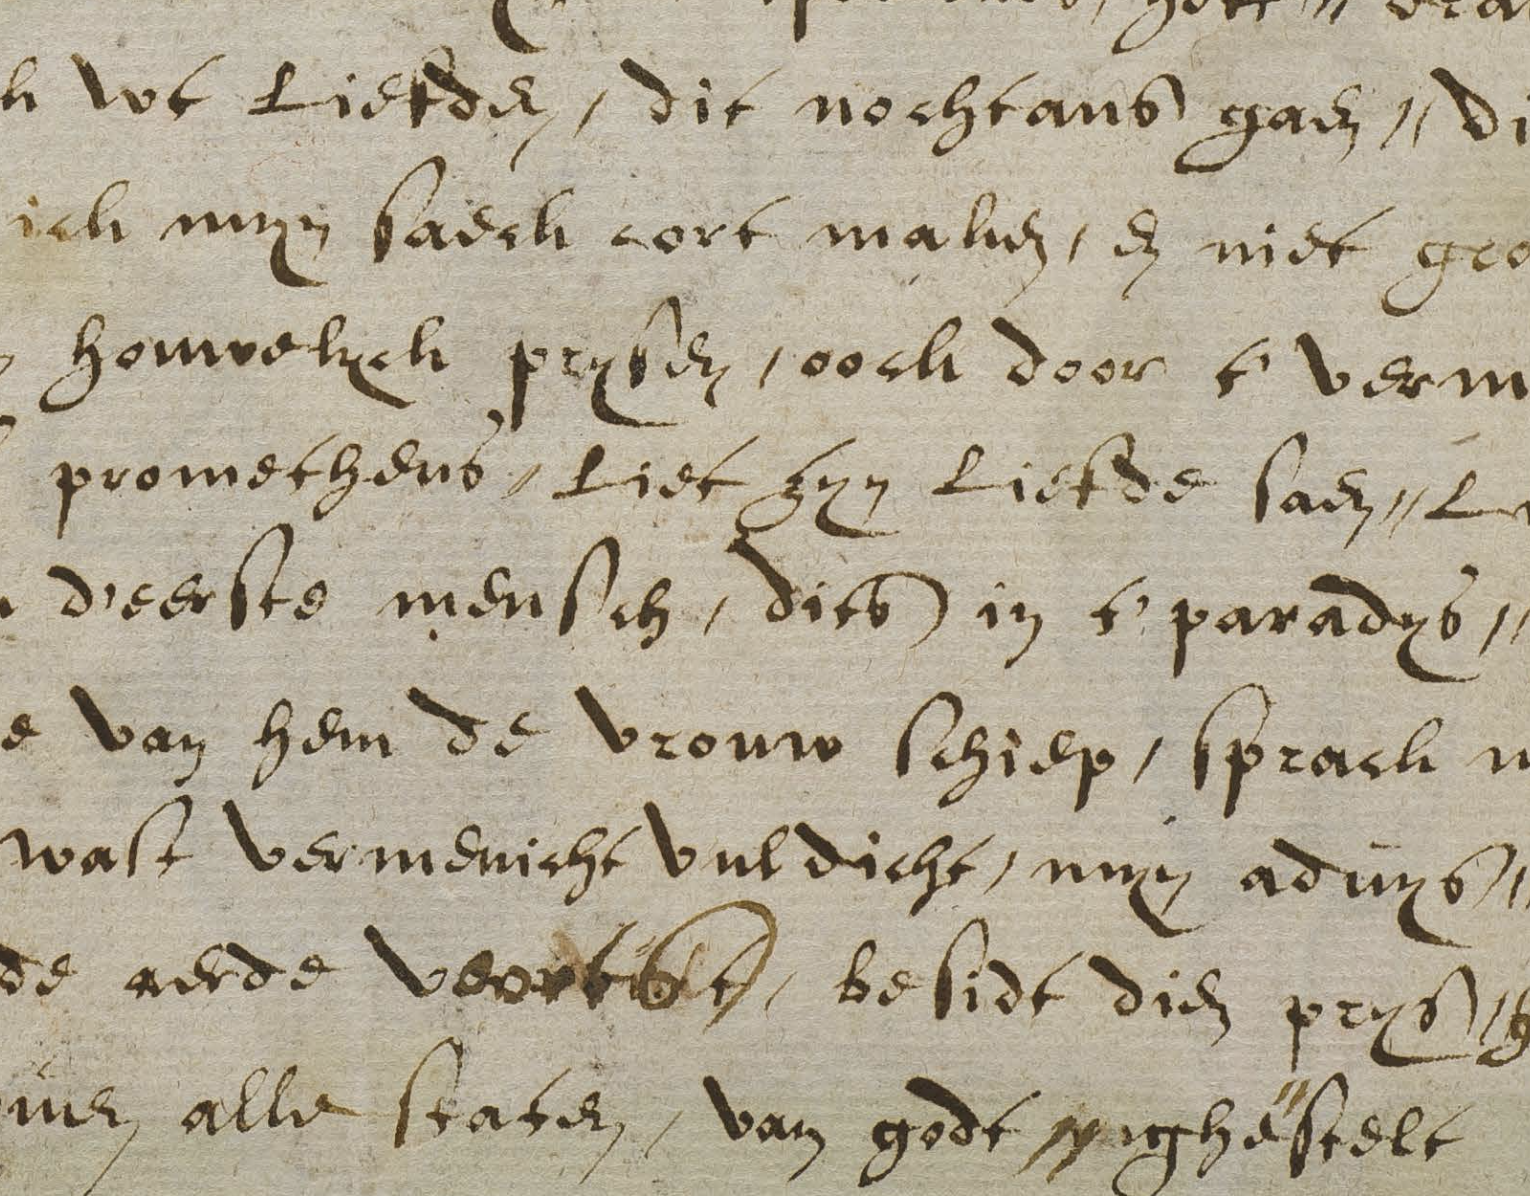 wt Liefden, / dit nochtans gaen, // di
ick myn saeck cort maken, / en niet gro
houwelyck prysen, / oock door t' verm
prometheus, // Liet zyn Liefde saen, // L
d'eerste mensch, / dits in t' paradys, //
e van hem de vrouw schiep, / sprack
wast vermenicht vuldicht, / myn aduys, //
de aerde besidt dien prys, //
alle staten, / van godt inghestelt